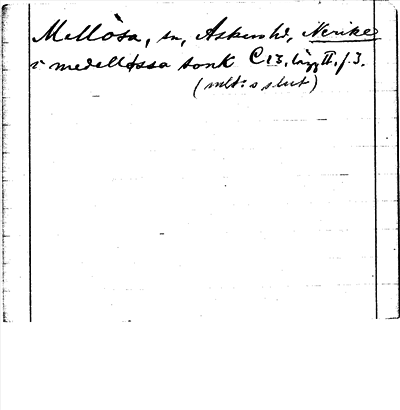 Mellösa, sn, Askers hd, Nerike
i medelløssa sonk C 13, lägg II, f. 3.
(mlt: s slut)